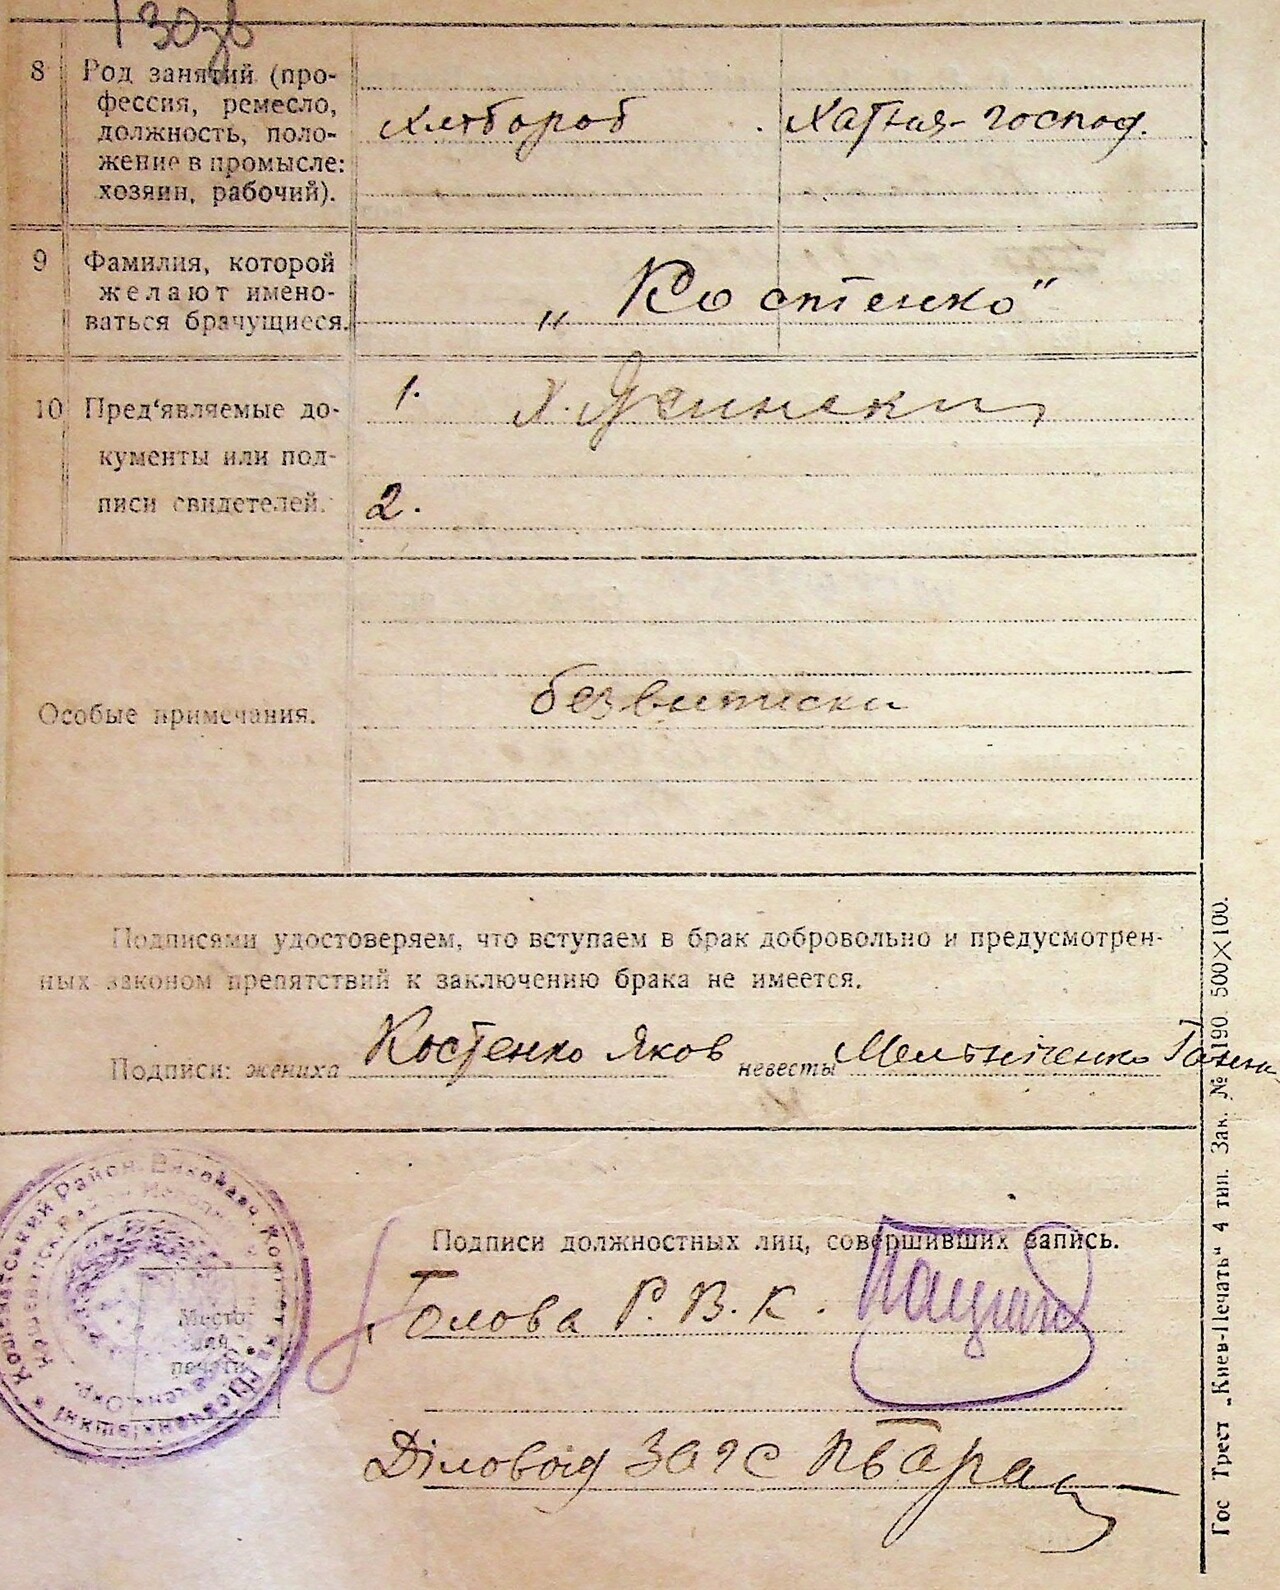 8 Род занятий (про-
фессия, ремесло,
должность, поло-
жение в промысле:
хозяин, рабочий).
хлібороб Хатня-господ.
9 Фамилия, которой
желают имено-
ваться брачущиеся.
„Костенко"
10 Пред'являемые до-
кументы или под-
писи свидетелей.
1. Х. Ясинский
2.
Особые примечания.
без виписки
Подписями удостоверяем, что вступаем в брак добровольно и предусмотрен-
ных законом препятствий к заключению брака не имеется.
Подписи: жениха Костенко Яков невесты Мельніченко
Подписи должностных лиц, совершивших запись.
Голова Р. В. К.
Діловод ЗАГС
Место
для
печати
Район. Виконавч. Комітет
Гос Трест „Киев-Печать" 4 тип. Зак. № 1190 500×100.